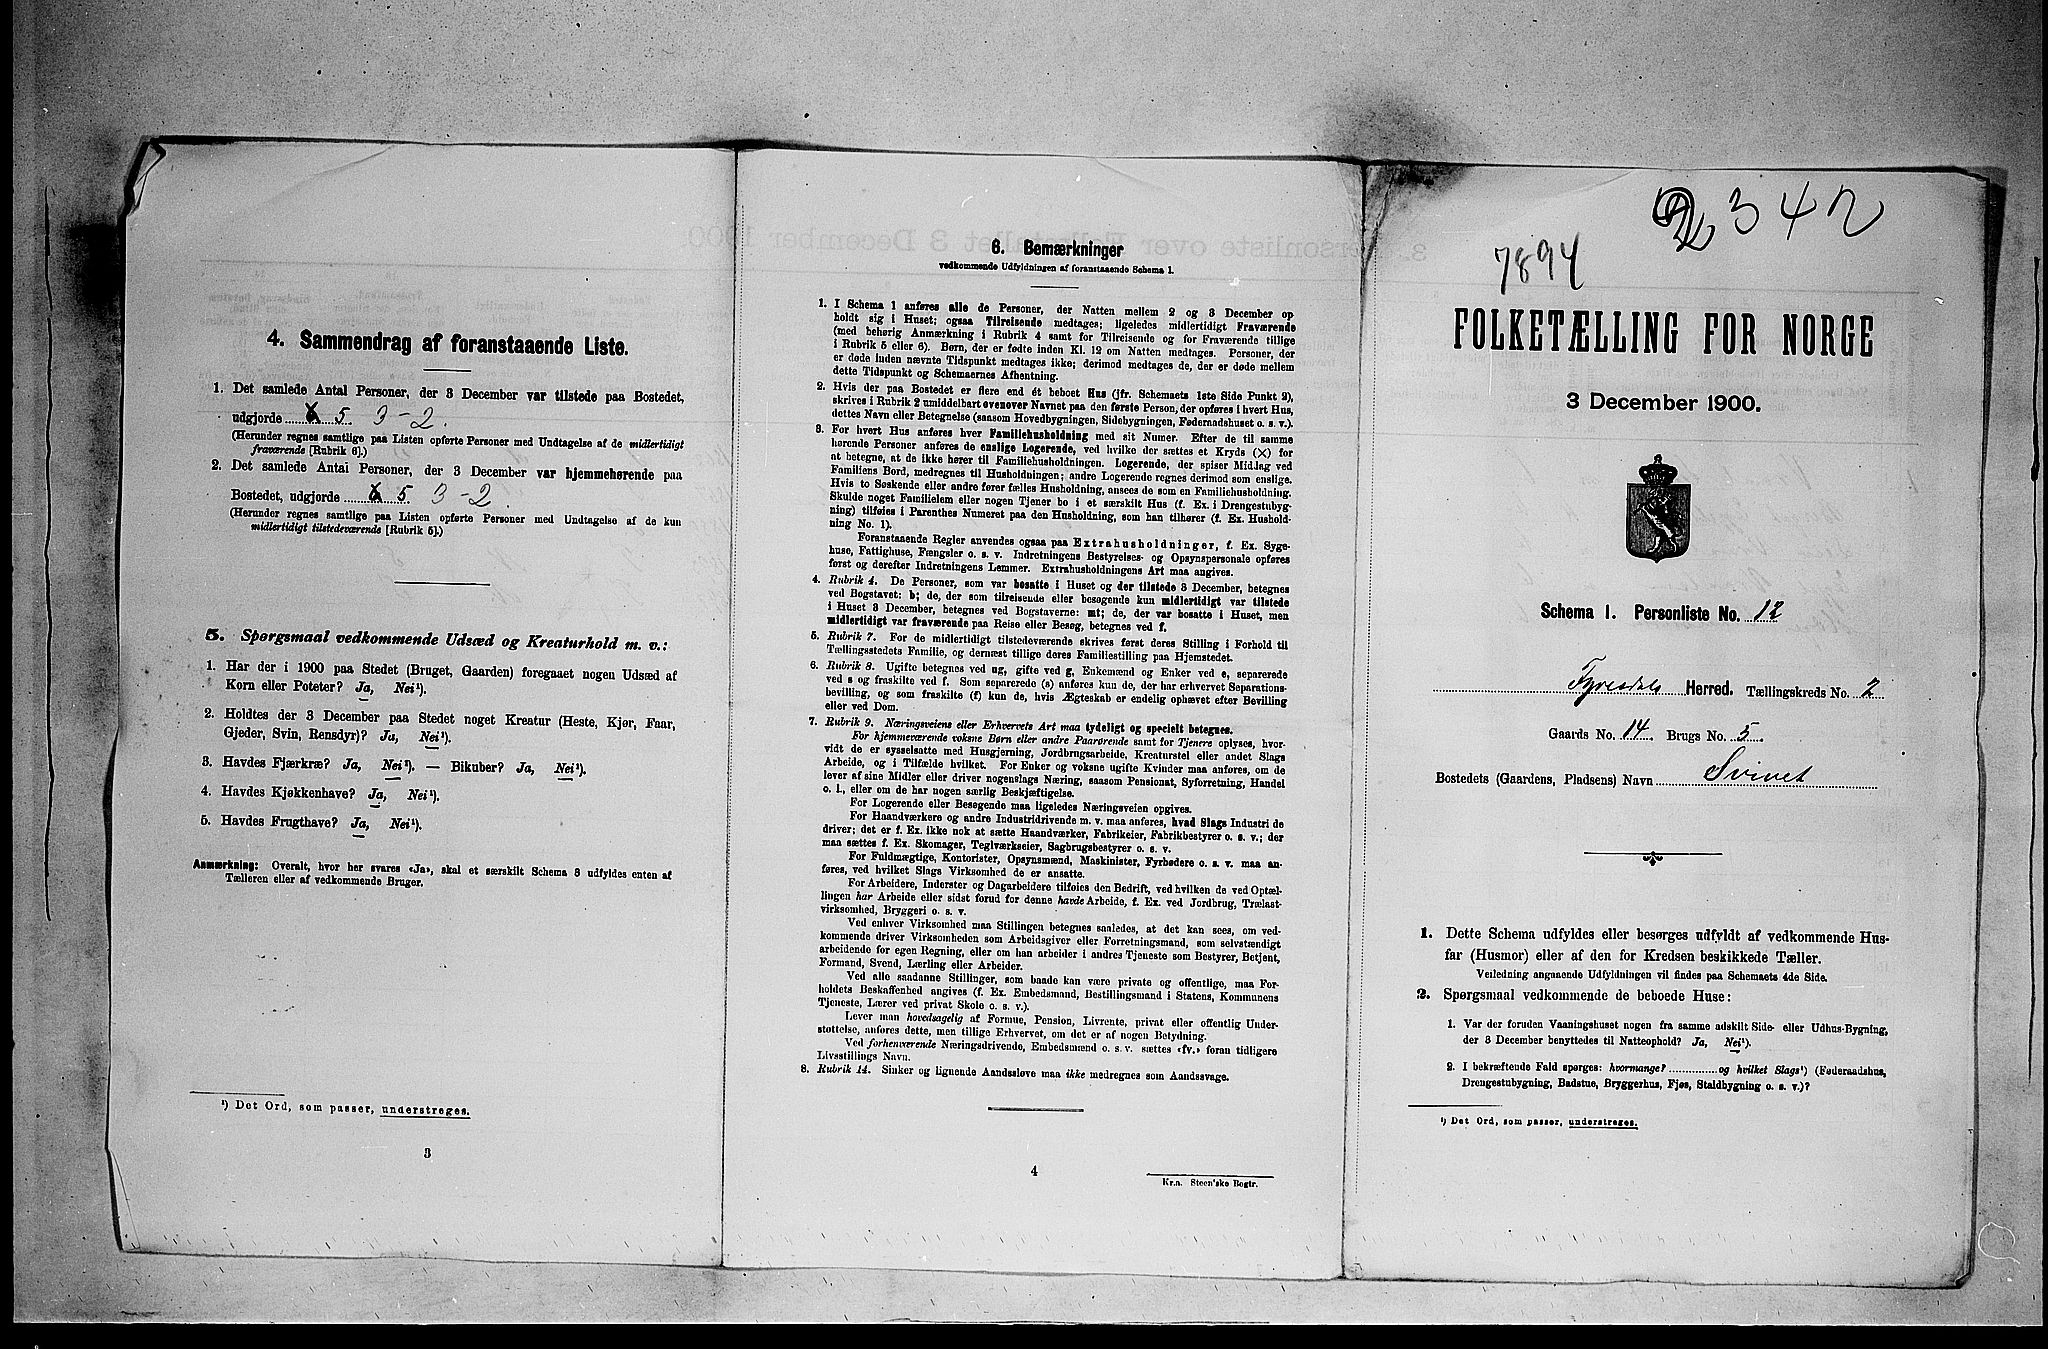 4. Sammendrag af foranstaaende Liste.
1. Det samlede Antal Personer, der 3 December var tilstede paa Bostedet,
udgjorde 5 3-2.
(Herunder regnes samtlige paa Listen opførte Personer med Undtagelse af de midlertidigt
fraværende [Rubrik 6].)
2. Det samlede Antal Personer, der 3 December var hjemmehørende paa
Bostedet, udgjorde 5 3-2
(Herunder regnes samtlige paa Listen opførte Personer med Undtagelse af de kun
midlertidigt tilstedeværende [Rubrik 5].)
5. Spørgsmaal vedkommende Udsæd og Kreaturhold m. v.:
1. Har der i 1900 paa Stedet (Bruget, Gaarden) foregaaet nogen Udsæd af
Korn eller Poteter? Ja, Nei¹).
2. Holdtes der 3 December paa Stedet noget Kreatur (Heste, Kjør, Faar,
Gjeder, Svin, Rensdyr)? Ja, Nei¹).
3. Havdes Fjærkræ? Ja, Nei¹). — Bikuber? Ja, Nei¹).
4. Havdes Kjøkkenhave? Ja, Nei¹).
5. Havdes Frugthave? Ja, Nei¹).
Anmærkning: Overalt, hvor her svares «Ja», skal et særskilt Schema 3 udfyldes enten af
Tælleren eller af vedkommende Bruger.
¹) Det Ord, som passer, understreges.
3
6. Bemærkninger
vedkommende Udfyldningen af foranstaaende Schema 1.
1. I Schema 1 anføres alle de Personer, der Natten mellem 2 og 3 December op
holdt sig i Huset; ogsaa Tilreisende medtages; ligeledes midlertidigt Fraværende
(med behørig Anmærkning i Rubrik 4 samt for Tilreisende og for Fraværende tillige
i Rubrik 5 eller 6). Børn, der er fødte inden Kl. 12 om Natten medtages. Personer, der
er døde inden nævnte Tidspunkt medtages ikke; derimod medtages de, der er døde mellem
dette Tidspunkt og Schemaernes Afhentning.
2. Hvis der paa Bostedet er flere end ét beboet Hus (jfr. Schemaets 1ste Side Punkt 2),
skrives i Rubrik 2 umiddelbart ovenover Navnet paa den første Person, der opføres i hvert Hus,
dettes Navn eller Betegnelse (saasom Hovedbygningen, Sidebygningen, Føderaadshuset o. s. v.).
3. For hvert Hus anføres hver Familiehusholdning med sit Numer. Efter de til samme
hørende Personer anføres de enslige Logerende, ved hvilke der sættes et Kryds (×) for
at betegne, at de ikke hører til Familiehusholdningen. Logerende, der spiser Middag ved
Familiens Bord, medregnes til Husholdningen; andre Logerende regnes derimod som enslige.
Hvis to Søskende eller andre fører fælles Husholdning, ansees de som en Familiehusholdning.
Skulde noget Familielem eller nogen Tjener bo i et særskilt Hus (f. Ex. i Drengestubyg-
ning) tilføies i Parenthes Numeret paa den Husholdning, som han tilhører (f. Ex. Hushold-
ning No. 1).
Foranstaaende Regler anvendes ogsaa paa Extrahusholdninger, f. Ex. Syge-
huse, Fattighuse, Fængsler o. s. v. Indretningens Bestyrelses- og Opsynspersonale opføres
først og derefter Indretningens Lemmer. Extrahusholdningens Art maa angives.
4. Rubrik 4. De Personer, som var bosatte i Huset og der tilstede 3 December, betegnes
ved Bogstavet: b; de, der som tilreisende eller besøgende kun midlertidigt var tilstede
i Huset 3 December, betegnes ved Bogstaverne: mt; de, der var bosatte i Huset, men
midlertidigt var fraværende paa Reise eller Besøg, betegnes ved f.
5. Rubrik 7. For de midlertidigt tilstedeværende skrives først deres Stilling i Forhold til
Tællingsstedets Familie, og dernæst tillige deres Familiestilling paa Hjemstedet.
6. Rubrik 8. Ugifte betegnes ved ug, gifte ved g, Enkemænd og Enker ved e, separerede
ved s og fraskilte ved f. Som separerede (s) anføres kun de, der har erhvervet Separations-
bevilling, og som fraskilte (f) kun de, hvis Ægteskab er endelig ophævet efter Bevilling
eller ved Dom.
7. Rubrik 9. Næringsveiens eller Erhvervets Art maa tydeligt og specielt betegnes.
For hjemmeværende voksne Børn eller andre Paarørende samt for Tjenere oplyses, hvor-
vidt de er sysselsatte med Husgjerning, Jordbrugsarbeide, Kreaturstel eller andet Slags
Arbeide, og i Tilfælde hvilket. For Enker og voksne ugifte Kvinder maa anføres, om de
lever af sine Midler eller driver nogenslags Næring, saasom Pensionat, Syforretning, Handel
o. l., eller om de har nogen særlig Beskjæftigelse.
For Logerende eller Besøgende maa ligeledes Næringsveien opgives.
For Haandværkere og andre Industridrivende m. v. maa anføres, hvad Slags Industri de
driver; det er f. Ex. ikke nok at sætte Haandværker, Fabrikeier, Fabrikbestyrer o. s. v.; der
maa sættes f. Ex. Skomager, Teglværkseier, Sagbrugsbestyrer o. s. v.
For Fuldmægtige, Kontorister, Opsynsmænd, Maskinister, Fyrbødere o. s. v. maa an-
føres, ved hvilket Slags Virksomhed de er ansatte.
For Arbeidere, Inderster og Dagarbeidere tilføies den Bedrift, ved hvilken de ved Optæl-
lingen har Arbeide eller sidst forud for denne havde Arbeide, f. Ex. ved Jordbrug, Trælast-
virksomhed, Bryggeri o. s. v.
Ved enhver Virksomhed maa Stillingen betegnes saaledes, at det kan sees, om ved-
kommende driver Virksomheden som Arbeidsgiver eller Forretningsmand, som selvstændigt
arbeidende for egen Regning, eller om han arbeider i andres Tjeneste som Bestyrer, Betjent,
Formand, Svend, Lærling eller Arbeider.
Ved alle saadanne Stillinger, som baade kan være private og offentlige, maa For-
holdets Beskaffenhed angives (f. Ex. Embedsmand, Bestillingsmand i Statens, Kommunens
Tjeneste, Lærer ved privat Skole o. s. v.).
Lever man hovedsagelig af Formue, Pension, Livrente, privat eller offentlig Under-
støttelse, anføres dette, men tillige Erhvervet, om det er af nogen Betydning.
Ved forhenværende Næringsdrivende, Embedsmænd o. s. v. sættes «fv.» foran tidligere
Livsstillings Navn.
8. Rubrik 14. Sinker og lignende Aandssløve maa ikke medregnes som Aandssvage.
4
Kr.a. Steen'ske Bogtr.
2342
7894
FOLKETÆLLING FOR NORGE
3 December 1900.
Schema 1. Personliste No. 12
Fyresdals Herred. Tællingskreds No. 2
Gaards No. 14. Brugs No. 5.
Bostedets (Gaardens, Pladsens) Navn Svivet
1. Dette Schema udfyldes eller besørges udfyldt af vedkommende Hus-
far (Husmor) eller af den for Kredsen beskikkede Tæller.
Veiledning angaaende Udfyldningen vil findes paa Schemaets 4de Side.
2. Spørgsmaal vedkommende de beboede Huse:
1. Var der foruden Vaaningshuset nogen fra samme adskilt Side- eller Udhus-Bygning,
der 3 December benyttedes til Natteophold? Ja, Nei¹).
2. I bekræftende Fald spørges: hvormange? og hvilket Slags¹) (Føderaadshus,
Drengestubygning, Badstue, Bryggerhus, Fjøs, Staldbygning o. s. v.)?
¹) Det Ord, som passer, understreges.